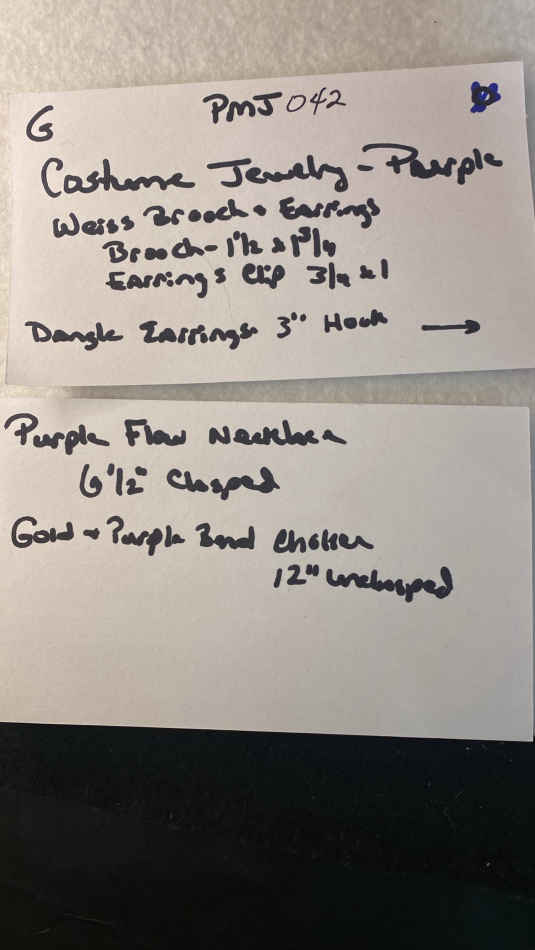 G PMJ 042
Costume Jewelry - Purple
Weiss Brooch + Earrings
Brooch - 1 1/2 x 1 3/4
Earrings Clip 3/4 x 1
Dangle Earrings 3" Hook →
Purple Flow Necklace
6 1/2" Clasped
Gold + Purple Bead Choker
12" unclasped